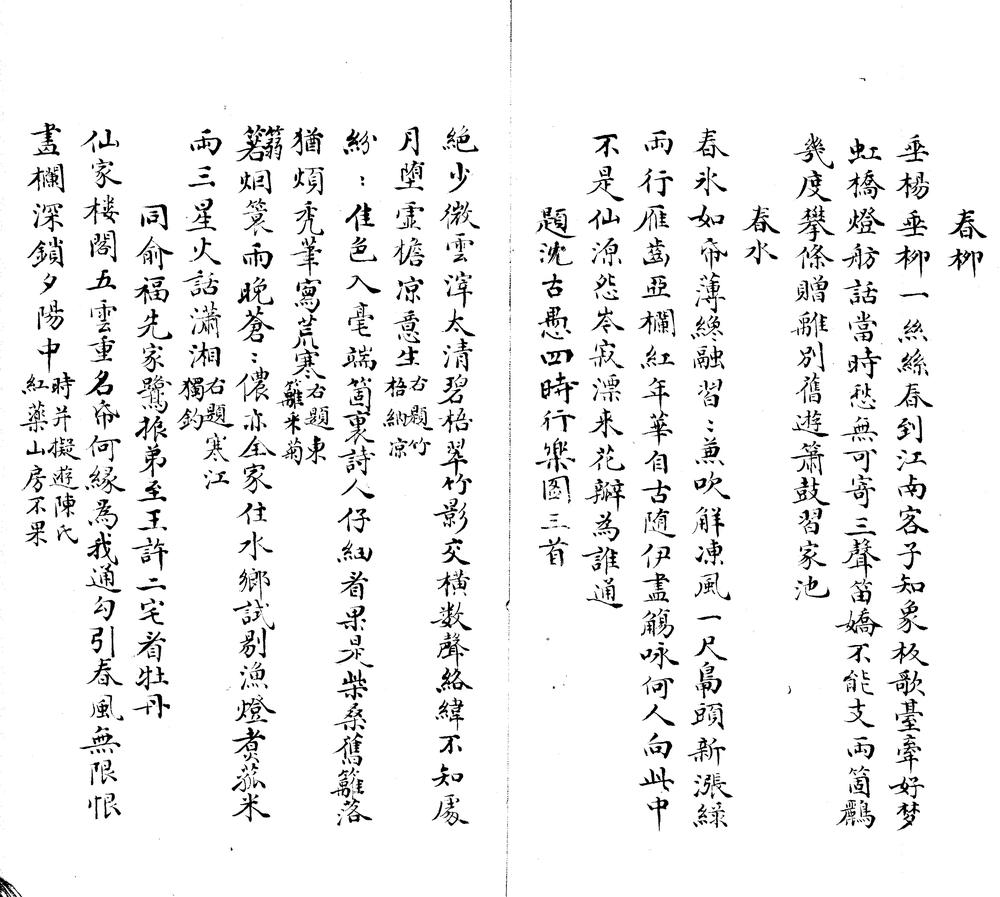 春柳
垂楊垂柳一絲絲春到江南客子知象板歌臺牽好梦
虹橋燈舫話當時愁無可寄三聲笛嬌不能支兩箇鸝
幾度攀條贈離別舊遊簫鼓習家池
春水
春氷如帋薄纔融習〻兼吹解凍風一尺鳧頭新漲緑
兩行雁齒亞欄紅年華自古随伊盡觴咏何人向此中
不是仙源怨岑寂漂来花瓣為誰通
題沈古愚四時行樂图三首
絶少微雲滓太清碧梧翠竹影交横数聲絡緯不知處
月墮虚檐凉意生右題竹梧納凉
紛〻佳色入毫端箇裏詩人仔細看果是柴桑舊籬落
猶煩秃筆寫荒寒右題東籬采菊
篛笠烟簑雨晚蒼〻儂亦全家住水鄉試剔漁燈煮菰米
兩三星火話瀟湘右題寒江獨釣
同俞福先家鷺振弟至王許二宅看牡丹
仙家楼閣五雲重名帋何緣為我通勾引春風無限恨
畫欄深鎖夕陽中時并擬遊陳氏紅藥山房不果